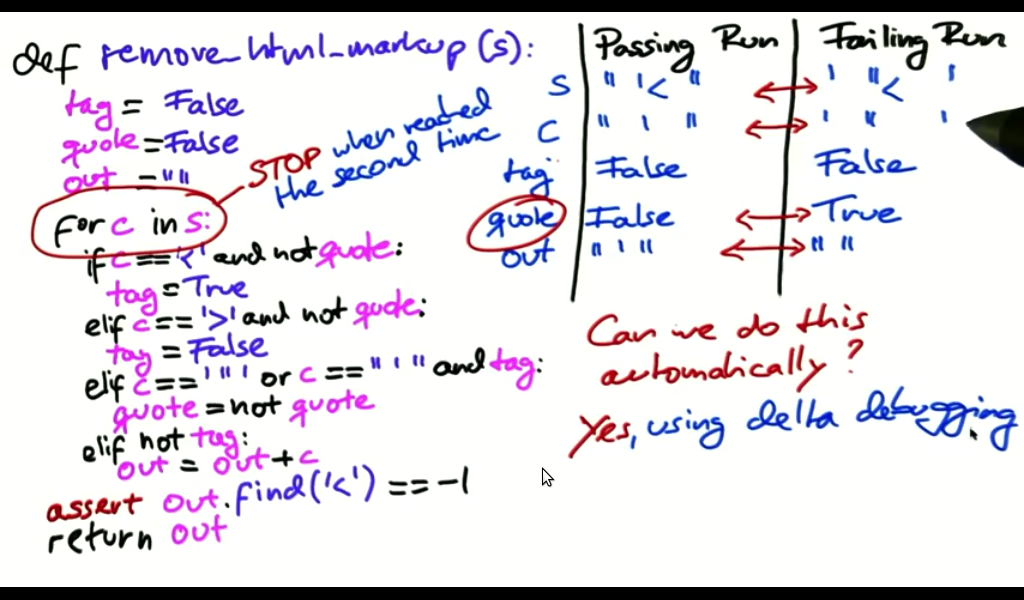 def remove_html_markup (s):
tag = False
quote = False
out = ""
for c in s:
if c == '<' and not quote:
tag = True
elif c == '>' and not quote:
tag = False
elif c == '"' or c == "'" and tag:
quote = not quote
elif not tag:
out = out + c
assert out.find('<') == -1
return out
STOP when reached
the second time
Passing Run Failing Run
s " '< " ' "< '
c " ' " ' " '
tag False False
quote False True
out " ' " " "
Can we do this
automatically?
Yes, using delta debugging